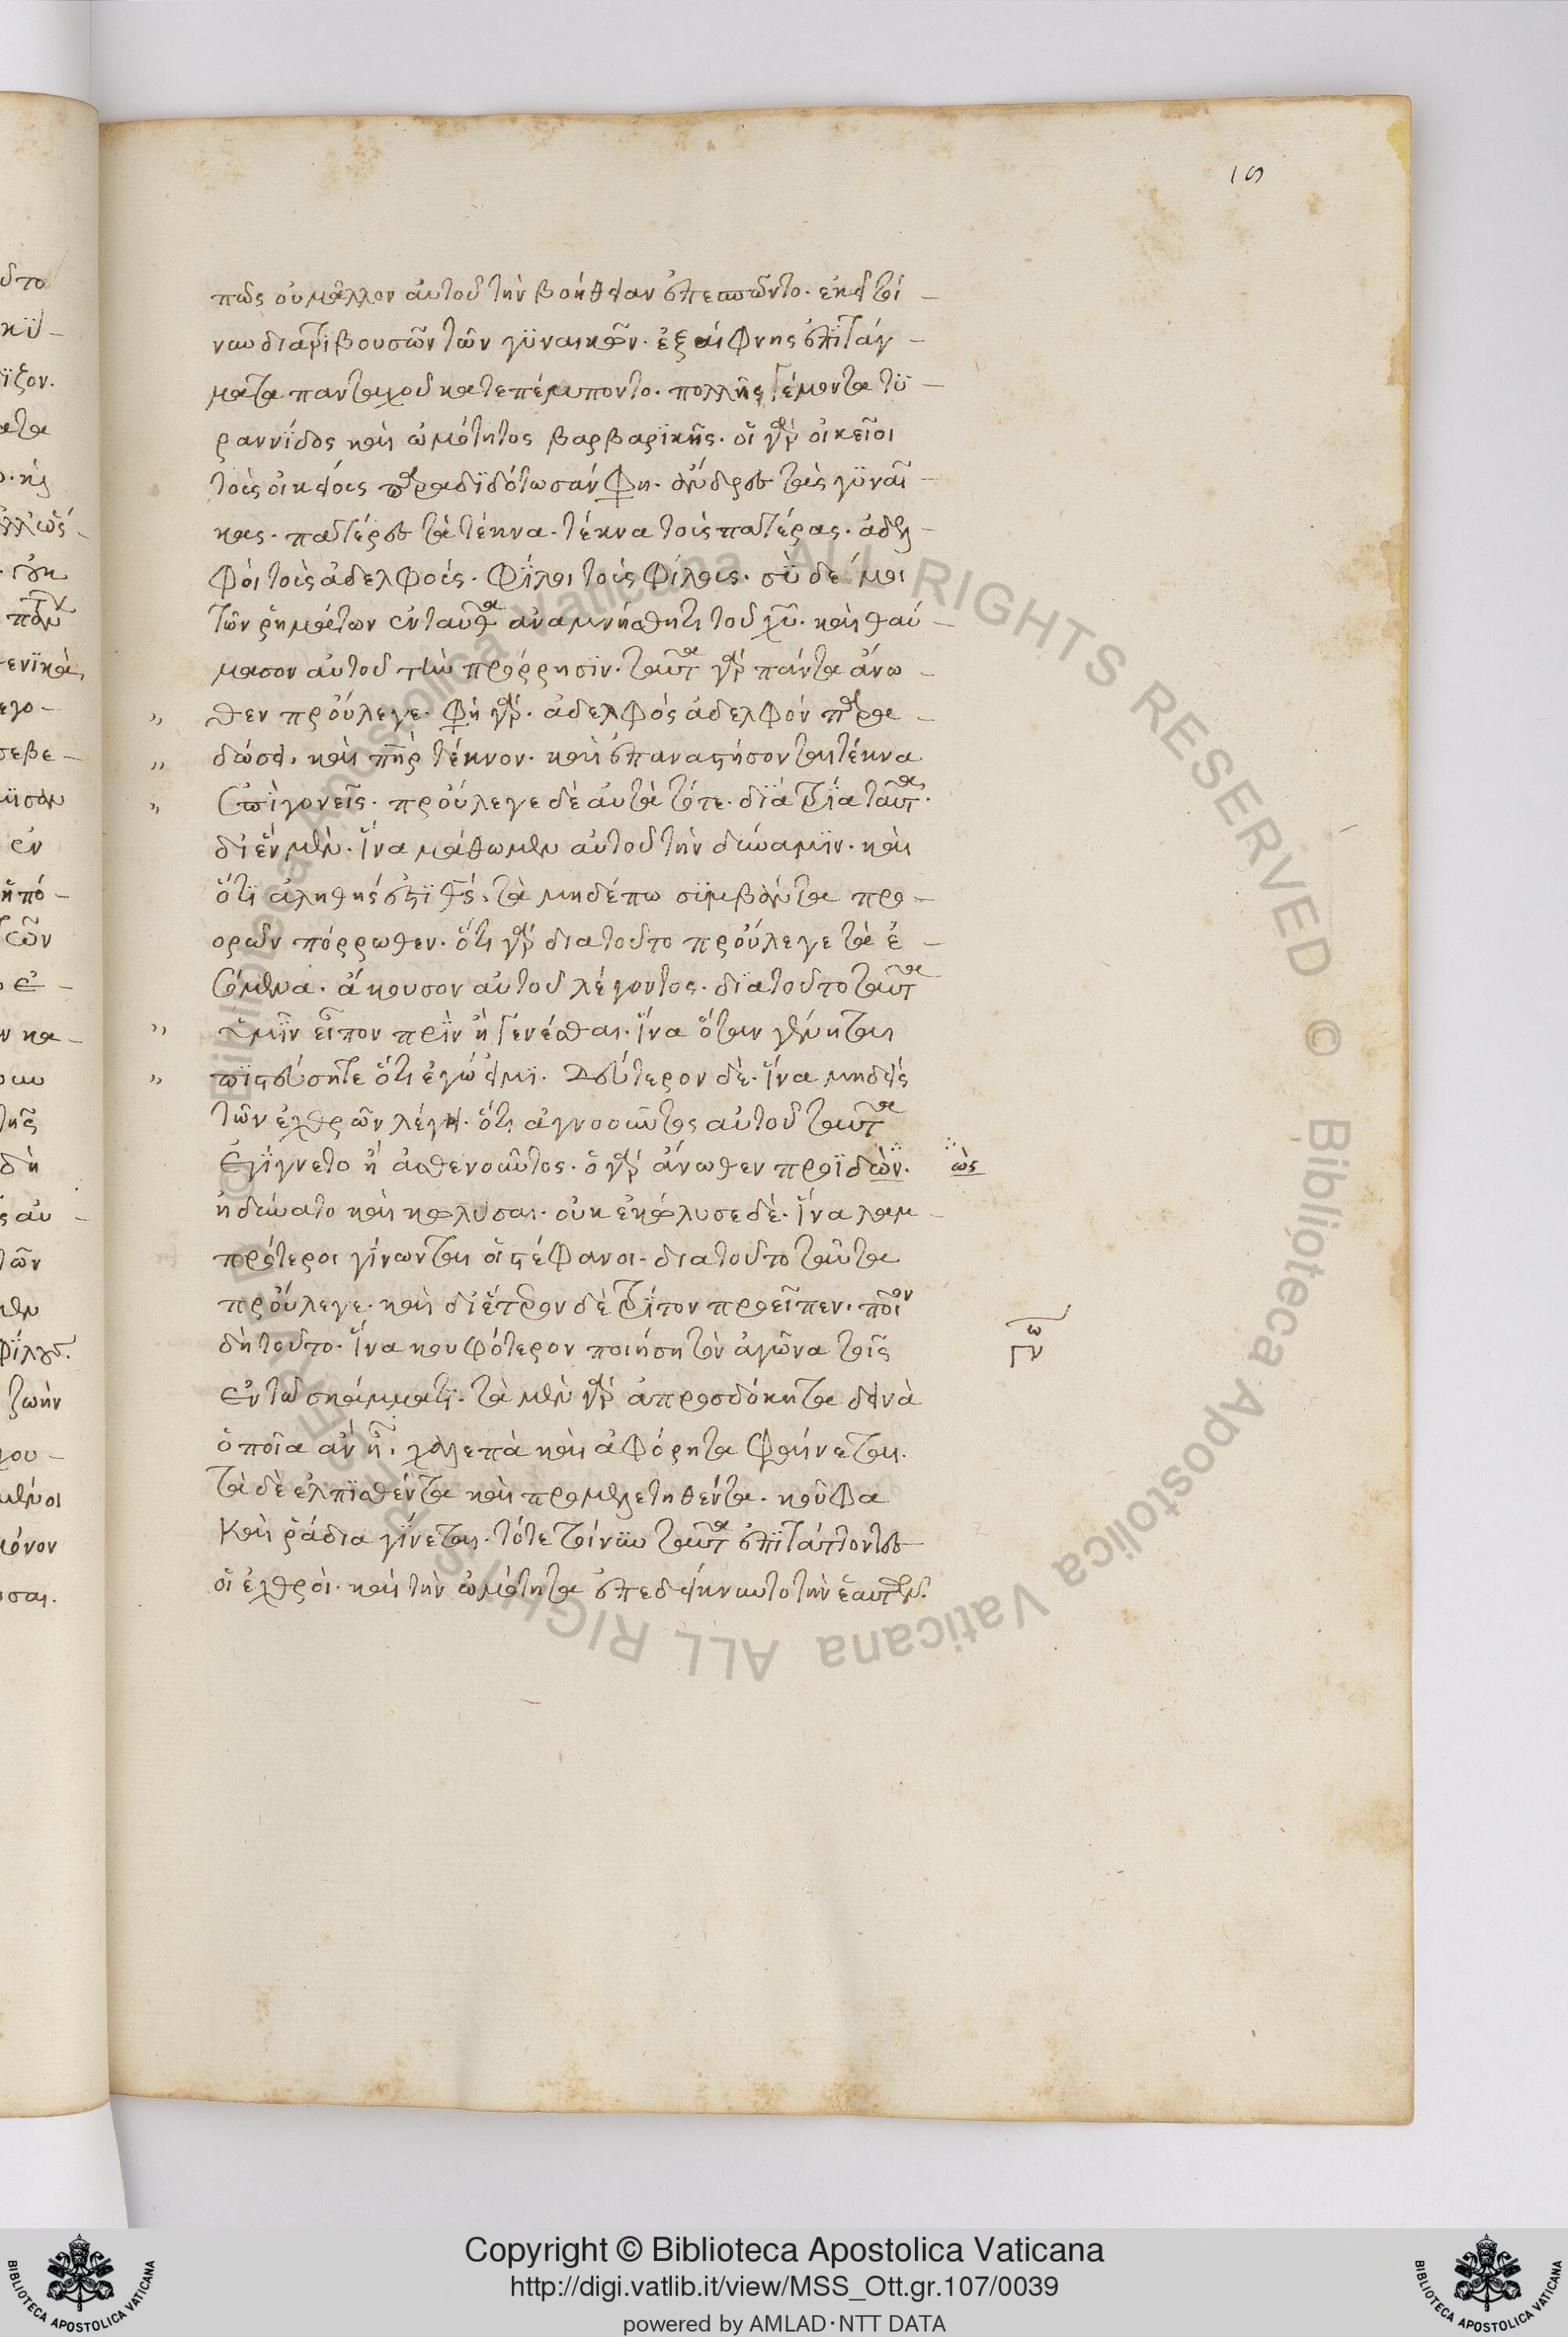 ις
πῶς οὐ μᾶλλον αὐτοῦ τὴν βοήθειαν ἐπεσπῶντο. ἐκεῖ τοί-
νυν διατριβουσῶν τῶν γϋναικῶν. ἐξαίφνης ἐπϊτάγ-
ματα πανταχοῦ κατεπέμποντο. πολλῆς γέμοντα τϋ-
ραννΐδος καὶ ὠμότητος βαρβαρϊκῆς. οἱ γὰρ οἰκεῖοι
τοὺς οἰκείους παραδϊδότωσαν φη. ἄνδρες τὰς γϋναῖ-
κας. πατέρες τὰ τέκνα. τέκνα τοὺς πατέρας. ἀδελ-
φοὶ τοὺς ἀδελφούς. φΐλοι τοὺς φίλους. σϋ δέ μοι
τῶν ῥημάτων ἐνταῦθα ἀναμνήσθητι τοῦ χῦ. καὶ θαύ-
μασον αὐτοῦ τὴν πρόρρησϊν. ταῦτα γὰρ πάντα ἄνω-
" θεν προὔλεγε. φη γάρ. ἀδελφὸς ἀδελφὸν παρα-
" δώσει. καὶ πηρ τέκνον. καὶ ἐπαναστήσονται τέκνα
" ἐπὶ γονεῖς. προὔλεγε δὲ αὐτὰ τότε. δϊὰ τρΐα ταῦτα.
δι' ἓν μὲν. ἵνα μάθωμεν αὐτοῦ τὴν δύναμϊν. καὶ
ὅτϊ ἀληθής ἐστϊ θς. τὰ μηδέπω συμβάντα προ-
ορῶν πόρρωθεν. ὅτι γὰρ διατοῦτο προὔλεγε τὰ ἐ-
σόμενα. ἄκουσον αὐτοῦ λέγοντος. δϊατοῦτο ταῦτα
" ὑμῖν εἶπον πρὶν ἢ γενέσθαι. ἵνα ὅταν γένηται
" πϊστεύσητε ὅτι ἐγώ εἰμϊ. δεύτερον δὲ. ἵνα μηδεὶς
τῶν ἐχθρῶν λέγη. ὅτι ἀγνοοῦντος αὐτοῦ ταῦτα
ἐγΐγνετο ἢ ἀσθενοῦντος. ὁ γὰρ ἄνωθεν προϊδὼν. ὼς
ἠδύνατο καὶ κωλῦσαι. οὐκ ἐκώλυσε δὲ. ἵνα λαμ-
πρότεροι γίνωνται οἱ στέφανοι. διατοῦτο ταῦτα
προὔλεγε. καὶ δι' ἕτερον δὲ τρΐτον προεῖπεν. ποῖον
δὴ τοῦτο. ἵνα κουφότερον ποιήση τὸν ἀγῶνα τοῖς
ἐν τῷ σκάμματϊ. τὰ μὲν γὰρ ἀπροσδόκητα δεινὰ
ὁποῖα ἂν ἦ. χαλεπὰ καὶ ἀφόρητα φαίνεται.
τὰ δὲ ἐλπϊσθέντα καὶ προμελετηθέντα. κοῦφα
καὶ ῥάδια γίνεται. τότε τοίνυν ταῦτα ἐπϊτάττοντες
οἱ ἐχθροὶ. καὶ τὴν ὠμότητα ἐπεδείκνυντο τὴν ἑαυτῶν.
Copyright © Biblioteca Apostolica Vaticana
http://digi.vatlib.it/view/MSS_Ott.gr.107/0039
powered by AMLAD·NTT DATA